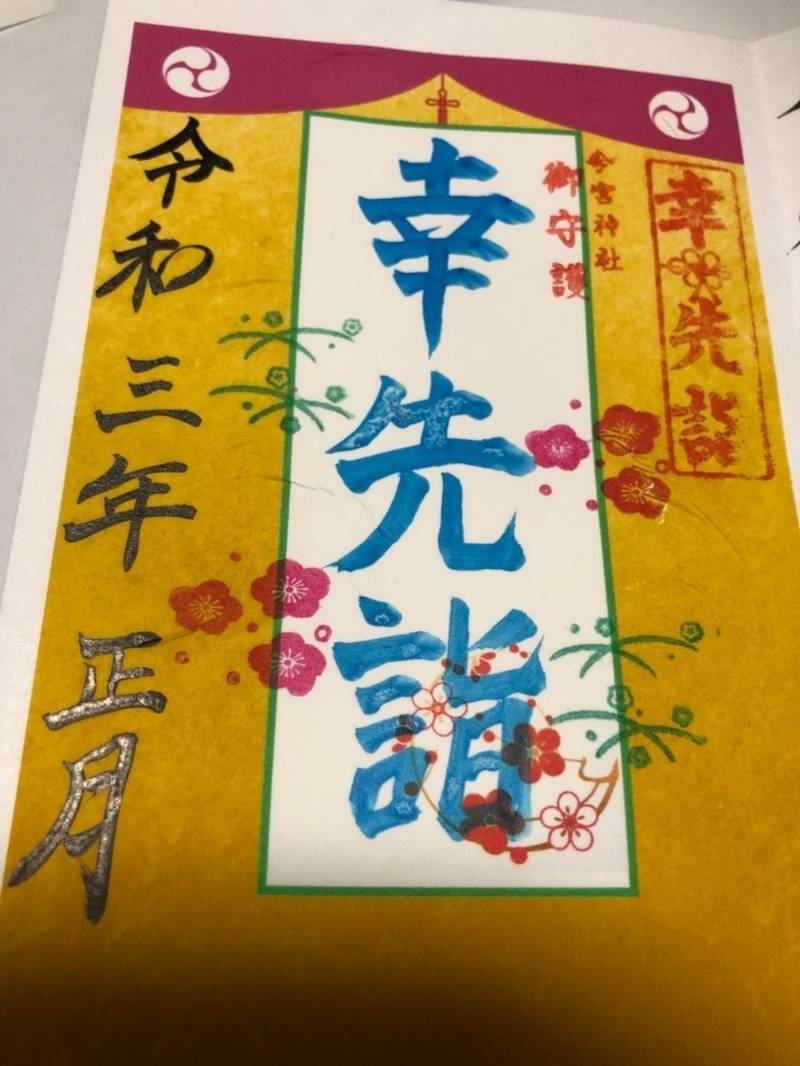 幸先詣
今宮神社
御守護
幸先詣
令和三年 正月